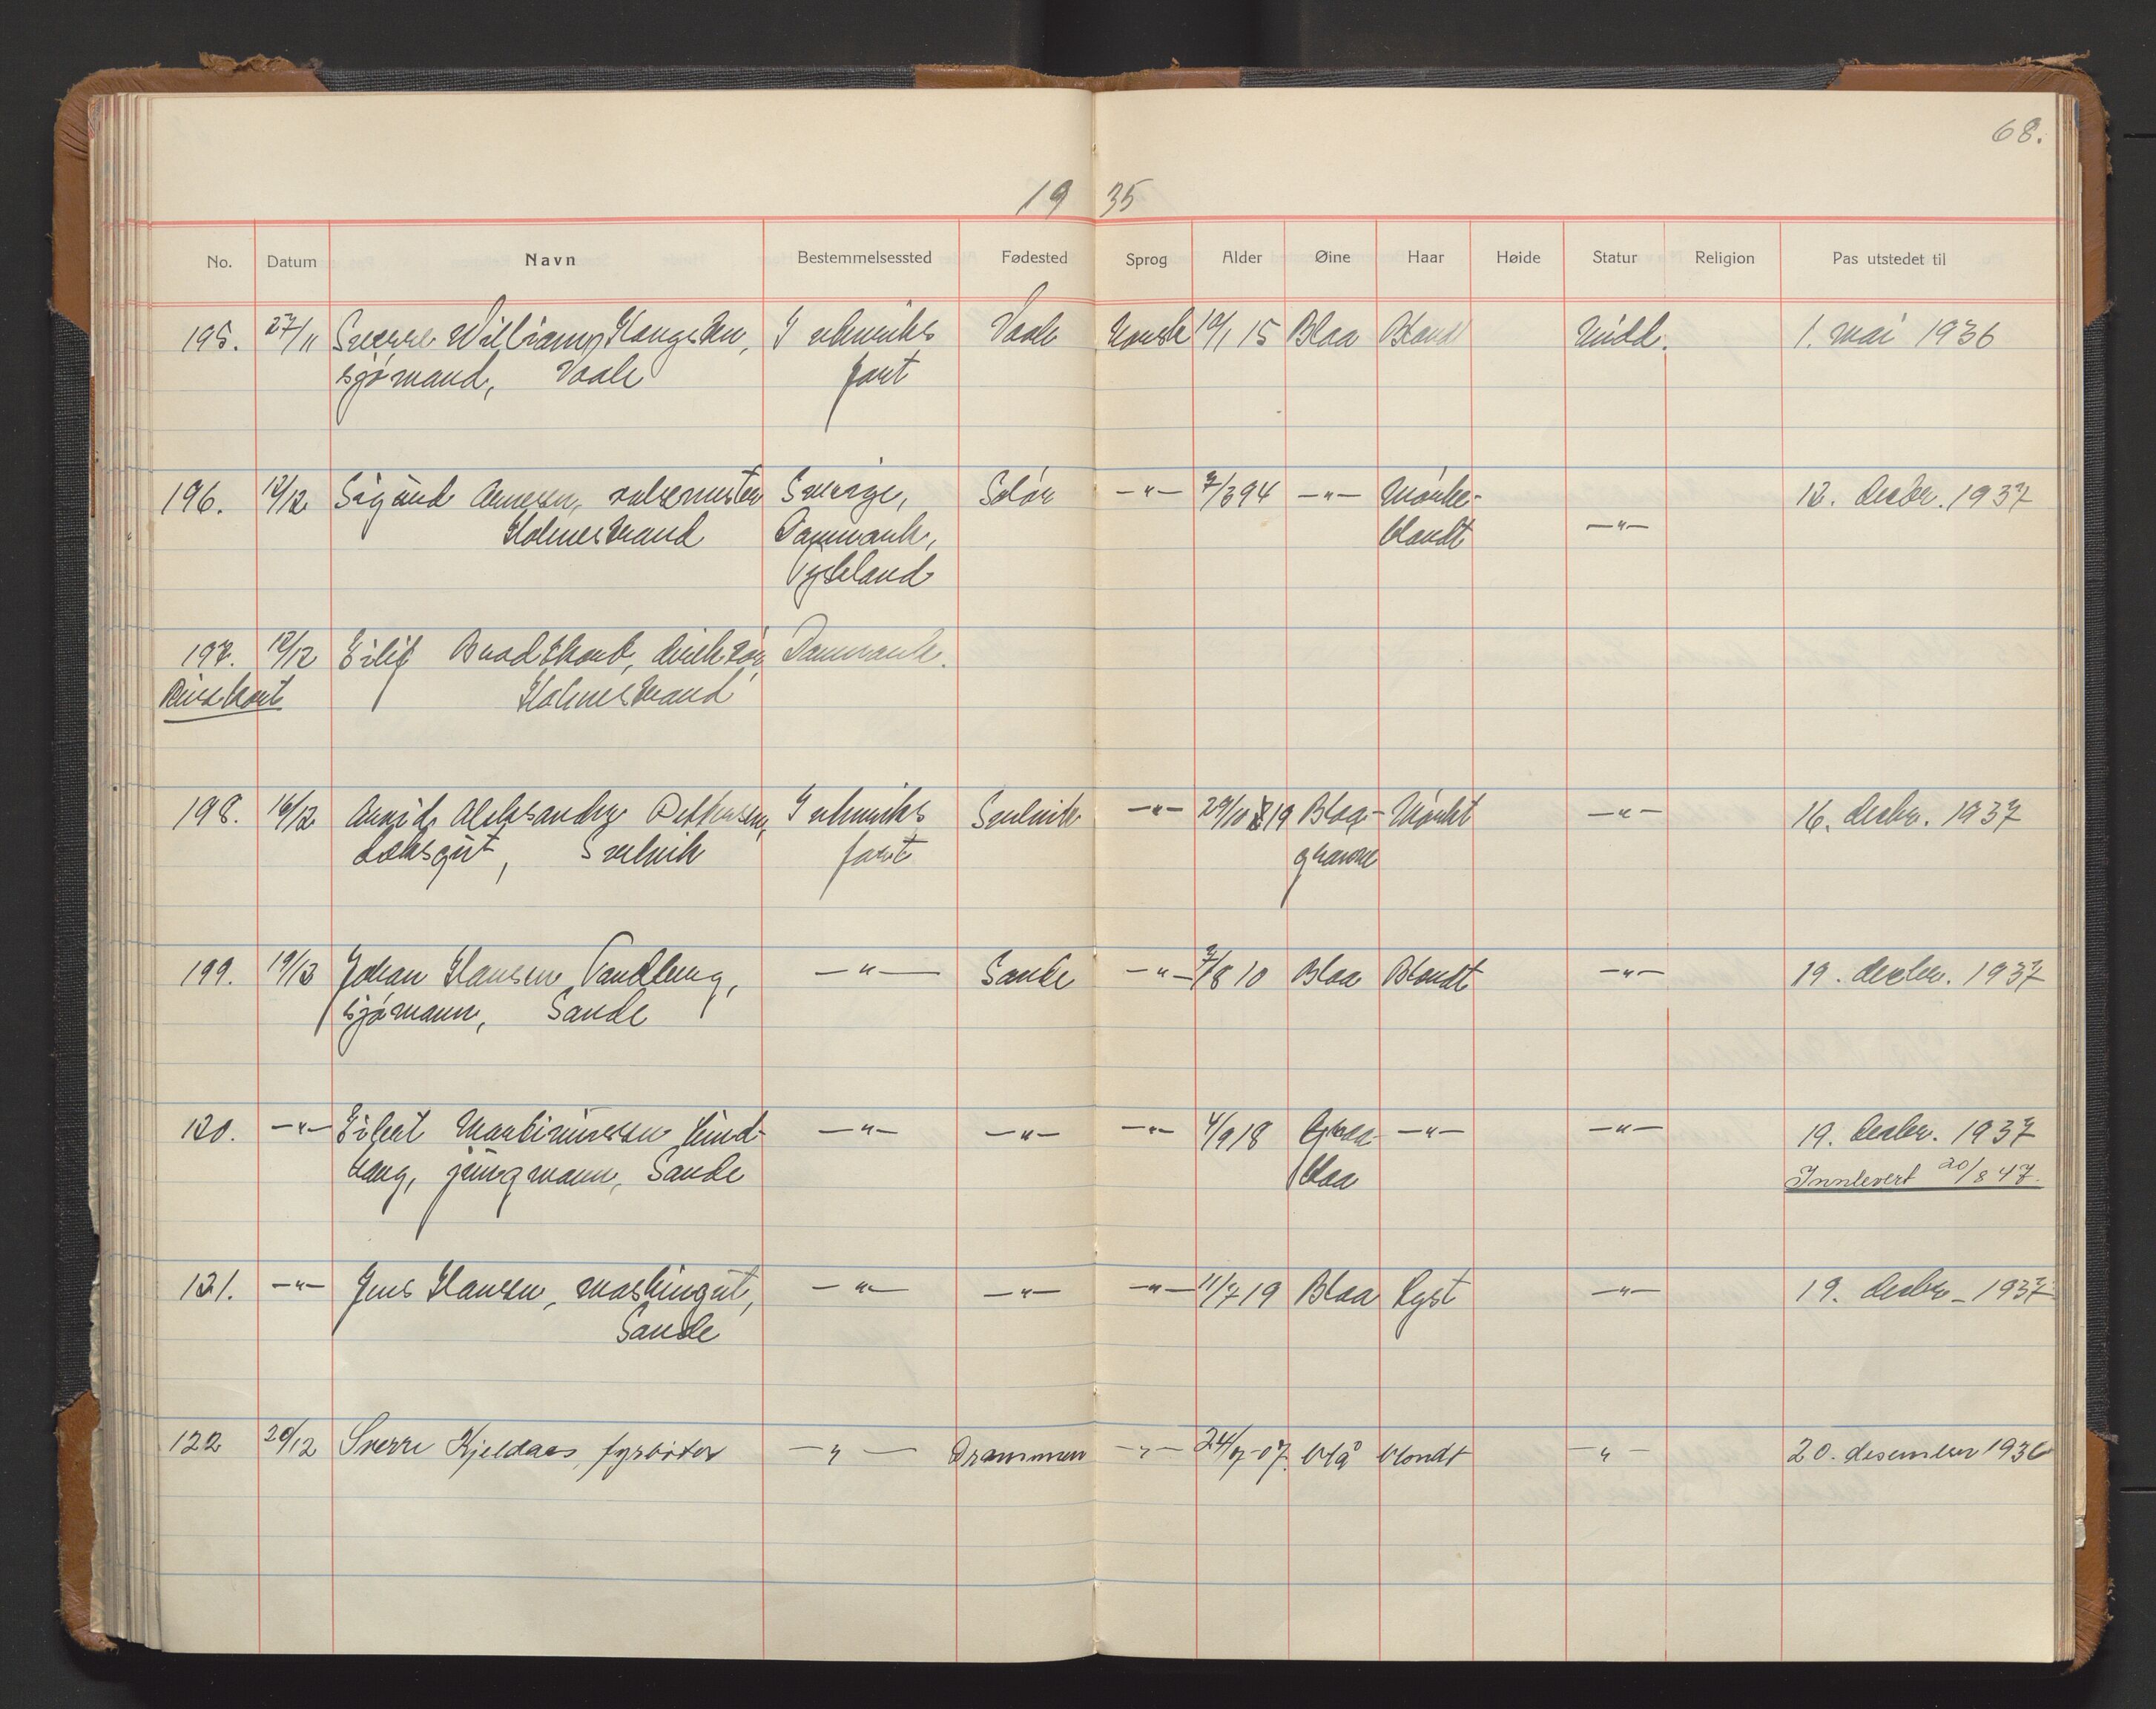 68.
19 35
No. Datum Navn Bestemmelsessted Fødested Sprog Alder Øine Haar Høide Statur Religion Pas utstedet til
195. 27/11 Sverre William Haugsten, I utenriks Vaale Norsk 10/1 15 Blaa Blond Midd. 1. mai 1936
sjømand, Vaale fart
196. 12/12 Sigurd Arnesen, Sverige, Solør —"— 7/3 94 —"— Mørke-
Holmestrand Danmark, blondt —"— 12. desbr. 1937
Tyskland
197. 12/12 Eilif direktør, Danmark.
Reisekort Holmestrand
198. 16/12 Arvid Aleksander Pettersen, I utenriks Svelvik —"— 29/10 19 Blaa- Mørkt —"— 16. desbr. 1937
dæksgut, Svelvik fart graane
199. 19/12 Johan Hansen Sandberg, —"— Sande —"— 7/8 10 Blaa Blondt —"— 19. desbr. 1937
sjømann, Sande
120. —"— Eilert Martiniussen Lind- —"— —"— —"— 4/9 18 Graa- —"— —"— 19. desbr. 1937
haug, jungmann, Sande blaa Innlevert 20/8 47.
121. —"— Jens Hansen, maskingut, —"— —"— —"— 11/7 19 Blaa Lyst —"— 19. desbr. 1937
Sande
122 20/12 Sverre Kjeldaas, fyrbøter —"— Drammen —"— 24/7-07. blå blondt —"— 20. desember 1936